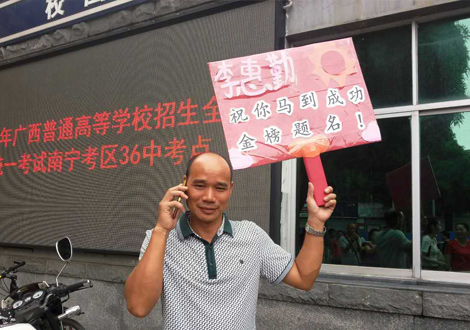 校
年广西普通高等学校招生全
统一考试南宁考区36中考点
李惠勤
祝你马到成功
金榜题名！